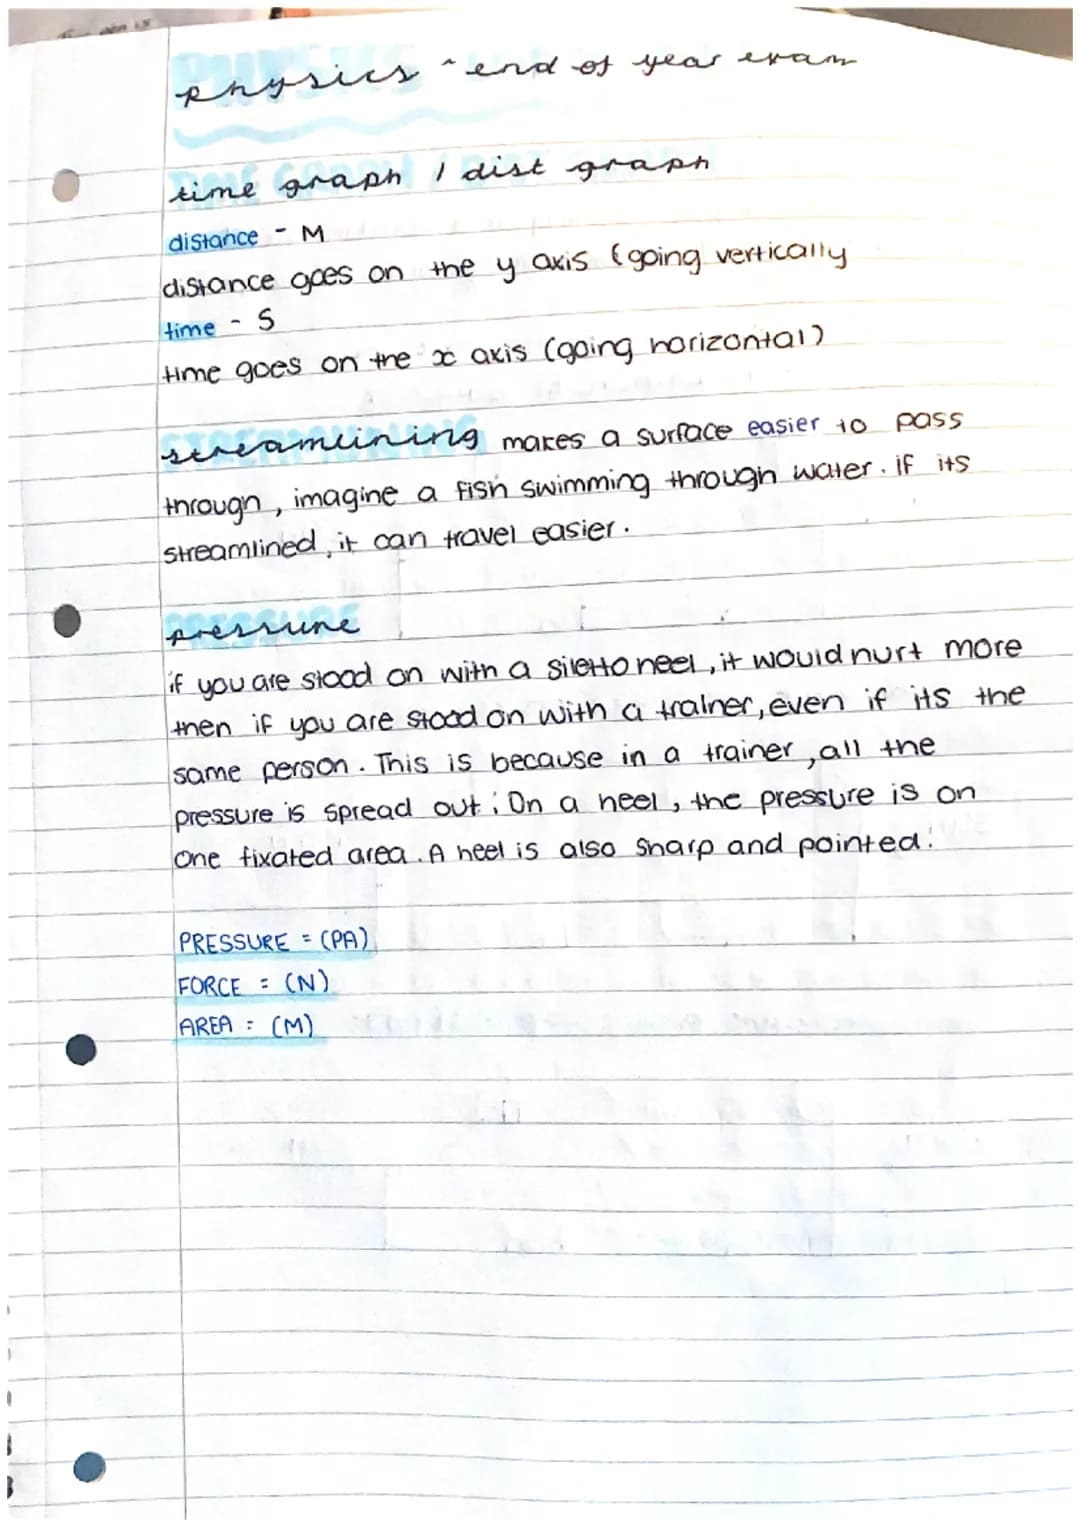 physics - end of year exam
time graph / dist graph
distance - M
distance goes on the y axis (going vertically
time - S
time goes on the x axis (going horizontal)
streamlining makes a surface easier to pass
through, imagine a fish swimming through water. if its
streamlined, it can travel easier.
pressure
if you are stood on with a siletto heel, it would hurt more
then if you are stood on with a trainer, even if its the
same person. This is because in a trainer, all the
pressure is spread out; On a heel, the pressure is on
one fixated area. A heel is also sharp and pointed.
PRESSURE = (PA)
FORCE = (N)
AREA = (M)